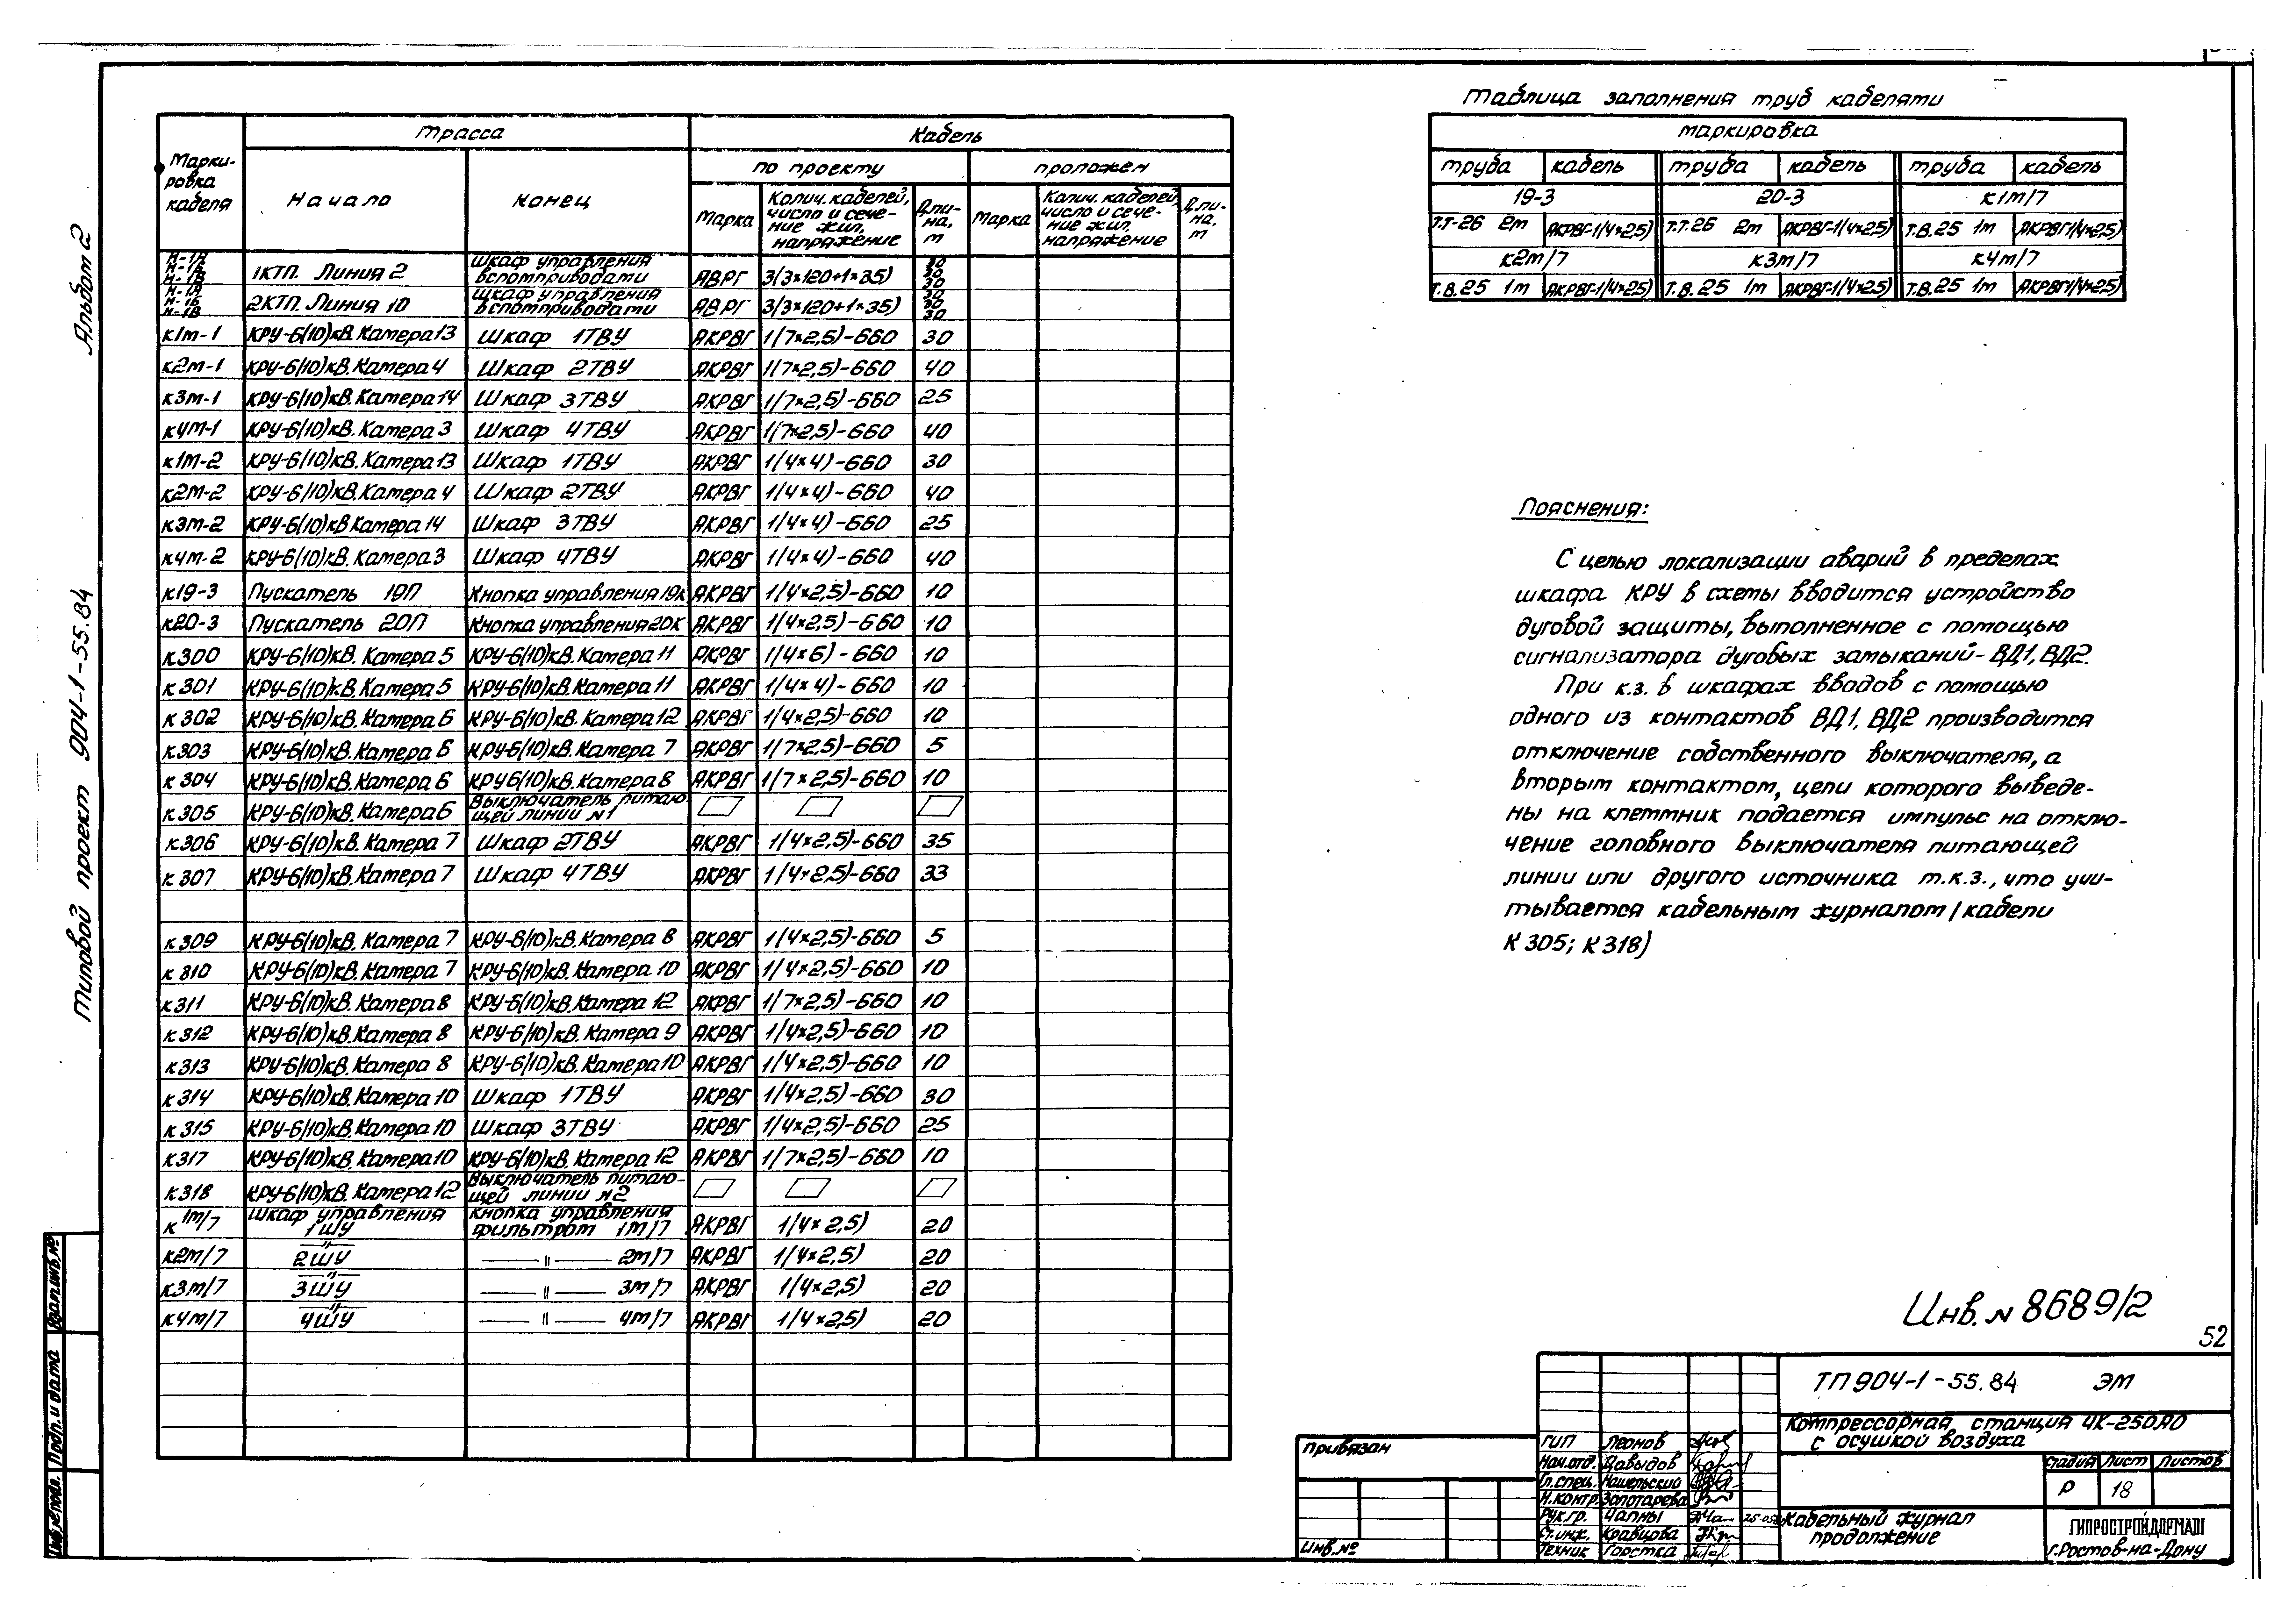 Альбом 2
Типовой проект 904-1-55.84
Маркировка кабеля | Трасса | Кабель
Начало | Конец | по проекту | проложен
Марка | Колич. кабелей, число и сечение жил, напряжение | Длина, м | Марка | Колич. кабелей, число и сечение жил, напряжение | Длина, м
1КТП. Линия 2 | Шкаф управления вспомприводами | АВРГ | 3/3×120+1×35) | 30 30 30
2КТП. Линия 10 | Шкаф управления вспомприводами | АВРГ | 3/3×120+1×35) | 30 30 30
К1м-1 | КРУ-6(10)кВ. Камера 13 | Шкаф 1ТВУ | АКРВГ | 1/7×2,5)-660 | 30
К2м-1 | КРУ-6(10)кВ. Камера 4 | Шкаф 2ТВУ | АКРВГ | 1(7×2,5)-660 | 40
К3м-1 | КРУ-6(10)кВ. Камера 14 | Шкаф 3ТВУ | АКРВГ | 1/7×2,5)-660 | 25
К4м-1 | КРУ-6(10)кВ. Камера 3 | Шкаф 4ТВУ | АКРВГ | 1(7×2,5)-660 | 40
К1м-2 | КРУ-6(10)кВ. Камера 13 | Шкаф 1ТВУ | АКРВГ | 1/4×4)-660 | 30
К2м-2 | КРУ-6(10)кВ. Камера 4 | Шкаф 2ТВУ | АКРВГ | 1/4×4)-660 | 40
К3м-2 | КРУ-6(10)кВ Камера 14 | Шкаф 3ТВУ | АКРВГ | 1/4×4)-660 | 25
К4м-2 | КРУ-6(10)кВ. Камера 3 | Шкаф 4ТВУ | АКРВГ | 1/4×4)-660 | 40
К19-3 | Пускатель 19П | Кнопка управления 19К | АКРВГ | 1/4×2,5)-660 | 10
К20-3 | Пускатель 20П | Кнопка управления 20К | АКРВГ | 1/4×2,5)-660 | 10
К300 | КРУ-6(10)кВ. Камера 5 | КРУ-6(10)кВ. Камера 11 | АКРВГ | 1/4×6)-660 | 10
К 301 | КРУ-6(10)кВ. Камера 5 | КРУ-6(10)кВ. Камера 11 | АКРВГ | 1/4×4)-660 | 10
К 302 | КРУ-6(10)кВ. Камера 6 | КРУ-6(10)кВ. Камера 12 | АКРВГ | 1/4×2,5)-660 | 10
К303 | КРУ-6(10)кВ. Камера 6 | КРУ-6(10)кВ. Камера 7 | АКРВГ | 1/7×2,5)-660 | 5
К 304 | КРУ-6(10)кВ. Камера 6 | КРУ6(10)кВ. Камера 8 | АКРВГ | 1/7×2,5)-660 | 10
К305 | КРУ-6(10)кВ. Камера 6 | Выключатель питающей линии №1
К306 | КРУ-6(10)кВ. Камера 7 | Шкаф 2ТВУ | АКРВГ | 1/4×2,5)-660 | 35
К 307 | КРУ-6(10)кВ. Камера 7 | Шкаф 4ТВУ | АКРВГ | 1/4×2,5)-660 | 33
К309 | КРУ-6(10)кВ. Камера 7 | КРУ-6(10)кВ. Камера 8 | АКРВГ | 1/4×2,5)-660 | 5
К 310 | КРУ-6(10)кВ. Камера 7 | КРУ-6(10)кВ. Камера 10 | АКРВГ | 1/4×2,5)-660 | 10
К311 | КРУ-6(10)кВ. Камера 8 | КРУ-6(10)кВ. Камера 12 | АКРВГ | 1/7×2,5)-660 | 10
К312 | КРУ-6(10)кВ. Камера 8 | КРУ-6(10)кВ. Камера 9 | АКРВГ | 1/4×2,5)-660 | 10
К313 | КРУ-6(10)кВ. Камера 8 | КРУ-6(10)кВ. Камера 10 | АКРВГ | 1/4×2,5)-660 | 10
К314 | КРУ-6(10)кВ. Камера 10 | Шкаф 1ТВУ | АКРВГ | 1/4×2,5)-660 | 30
К 315 | КРУ-6(10)кВ. Камера 10 | Шкаф 3ТВУ | АКРВГ | 1/4×2,5)-660 | 25
К317 | КРУ-6(10)кВ. Камера 10 | КРУ-6(10)кВ. Камера 12 | АКРВГ | 1/7×2,5)-660 | 10
К318 | КРУ-6(10)кВ. Камера 12 | Выключатель питающей линии №2
К1м/7 | Шкаф управления 1ШУ | Кнопка управления фильтром 1м/7 | АКРВГ | 1/4×2,5) | 20
К2м/7 | —"— 2ШУ | —"— 2м/7 | АКРВГ | 1/4×2,5) | 20
К3м/7 | —"— 3ШУ | —"— 3м/7 | АКРВГ | 1/4×2,5) | 20
К4м/7 | —"— 4ШУ | —"— 4м/7 | АКРВГ | 1/4×2,5) | 20
Таблица заполнения труб кабелями
маркировка
труба | кабель | труба | кабель | труба | кабель
19-3 | 20-3 | К1м/7
Т.Т-26 2м | АКРВГ-1/4×2,5) | Т.Т.26 2м | АКРВГ-1/4×2,5) | Т.В.25 1м | АКРВГ1/4×2,5)
К2м/7 | К3м/7 | К4м/7
Т.В.25 1м | АКРВГ-1/4×2,5) | Т.В.25 1м | АКРВГ-1/4×2,5) | Т.В.25 1м | АКРВГ1/4×2,5)
Пояснения:
С целью локализации аварий в пределах
шкафа КРУ в схемы вводится устройство
дуговой защиты, выполненное с помощью
сигнализатора дуговых замыканий-ВД1, ВД2.
При к.з. в шкафах вводов с помощью
одного из контактов ВД1, ВД2 производится
отключение собственного выключателя, а
вторым контактом, цепи которого выведе-
ны на клеммник подается импульс на отклю-
чение головного выключателя питающей
линии или другого источника т.к.з., что учи-
тывается кабельным журналом/кабели
К 305; К 318)
Инв. № 8689/2
52
ТП 904-1-55.84 ЭМ
Компрессорная станция 4К-250АО
с осушкой воздуха
Стадия | Лист | Листов
Р | 18
Кабельный журнал
продолжение
ГИПРОСТРОЙДОРМАШ
г.Ростов-на-Дону
привязан
Инв.№
ГИП Леонов
Нач.отд. Давыдов
Гл.спец. Нашельский
Н.контр. Золотарева
Рук.гр. Чапны
Ст.инж. Кравцова
Техник Горстка
Взам.инв.№
Подп.и дата
Инв.№подл.